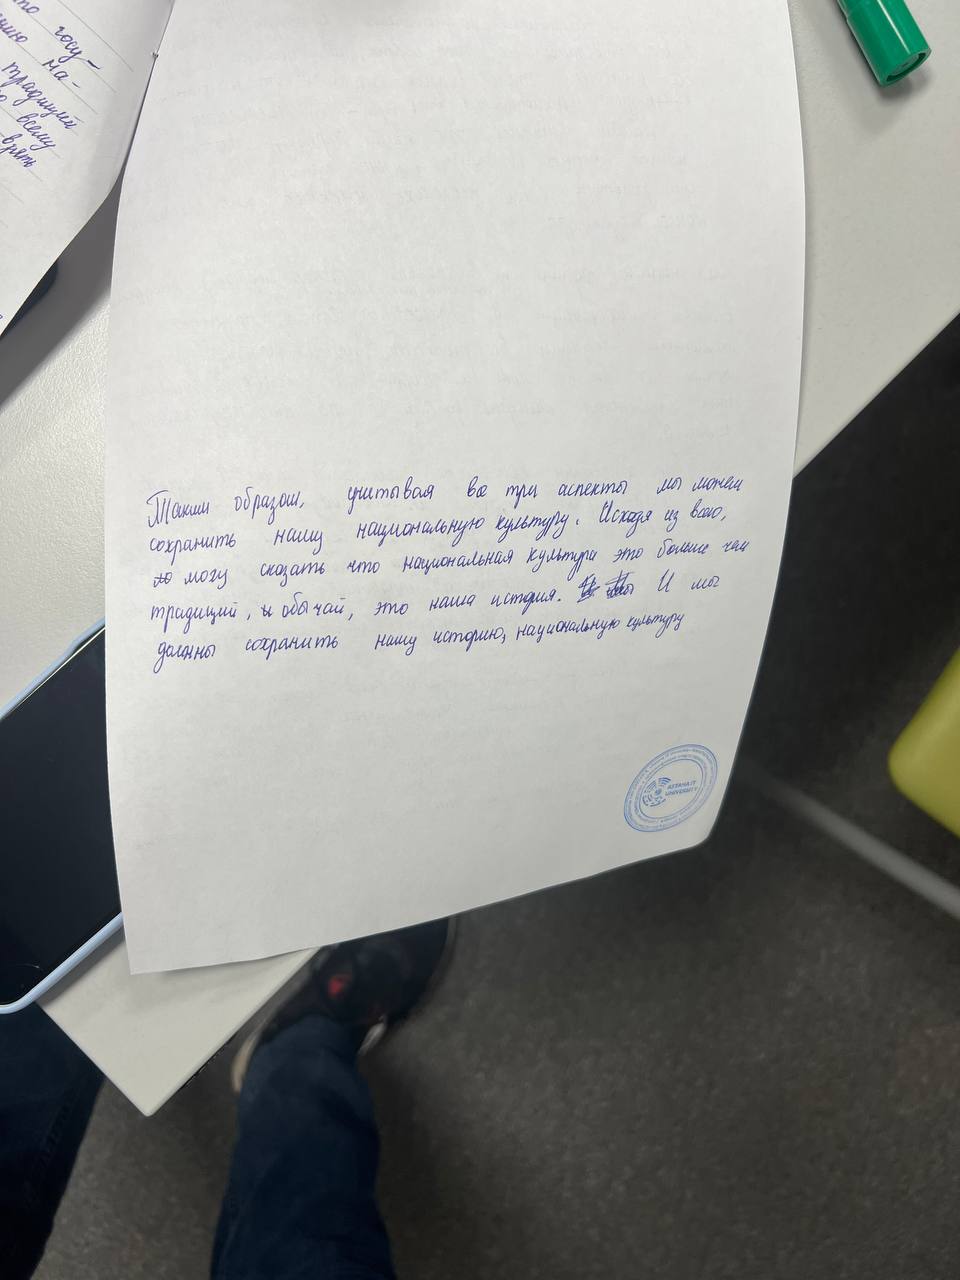 госу-
на-
традиций
всему
Таким образом, учитывая все три аспекты мы можем
сохранить нашу национальную культуру. Исходя из всего,
могу сказать что национальная культура это больше чем
традиций, и обычай, это наша история. И мы
должны сохранить нашу историю, национальную культуру
ASTANA IT
UNIVERSITY